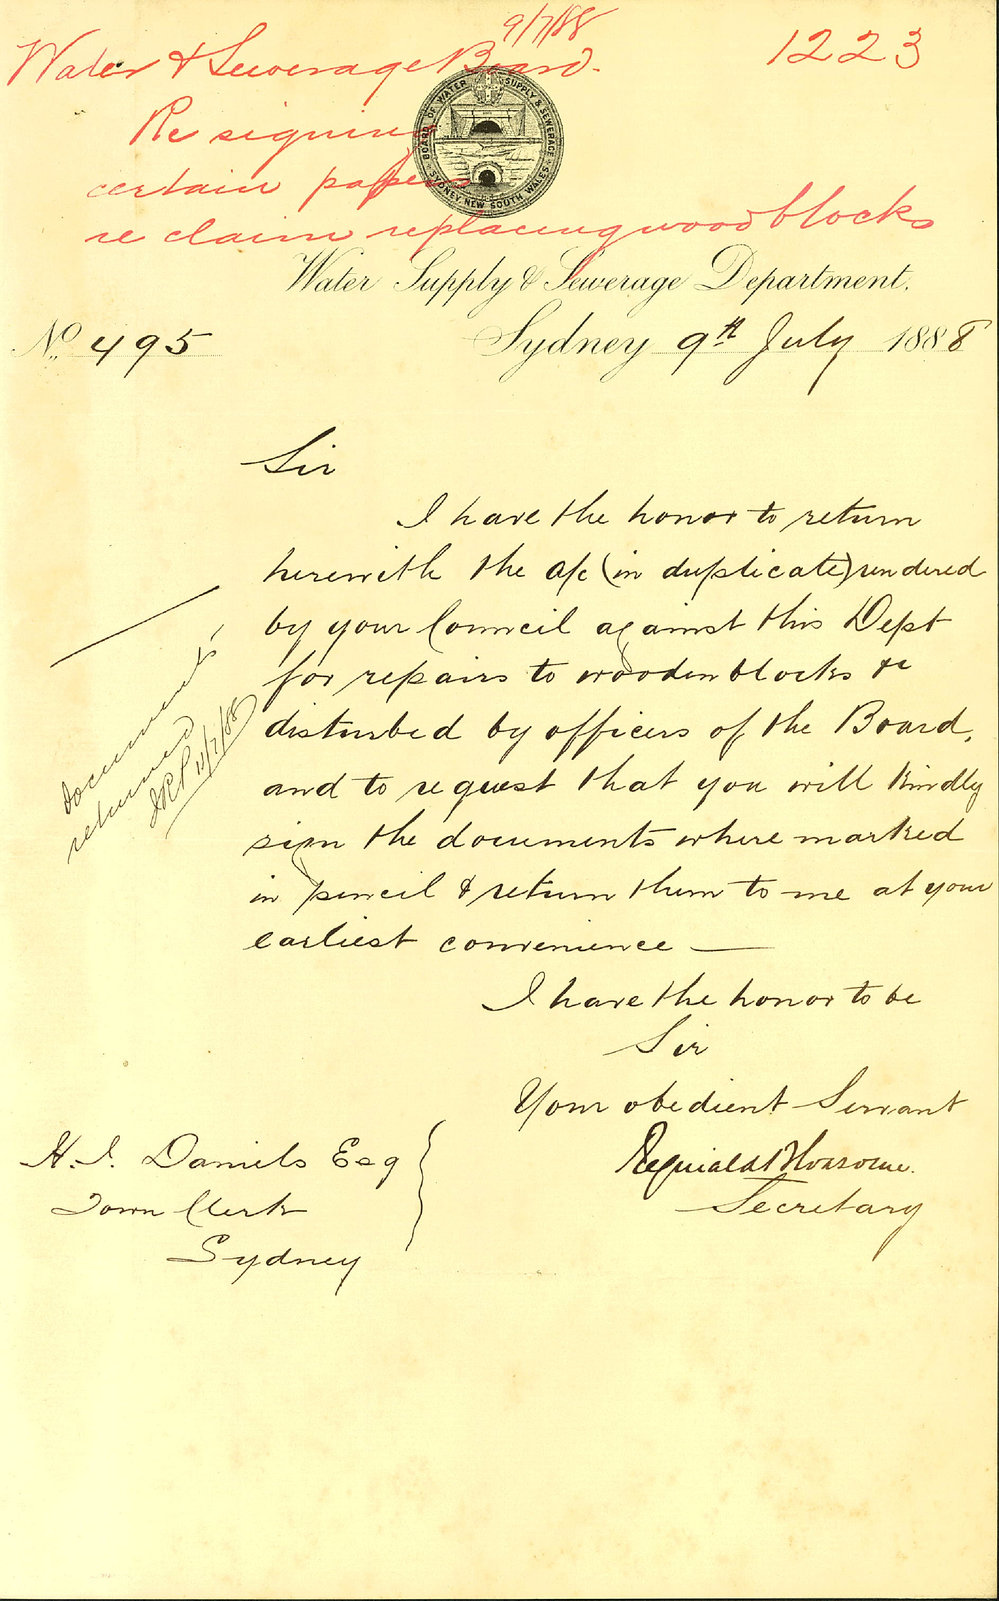 9/7/88
Water & Sewerage Board.
1223
Re signing
certain papers
re claim replacing wood blocks
BOARD OF WATER SUPPLY & SEWERAGE
SYDNEY NEW SOUTH WALES
Water Supply & Sewerage Department.
No. 495
Sydney 9th July 1888
Sir
I have the honor to return
herewith the a/c (in duplicate) rendered
by your Council against this Dept
for repairs to wooden blocks &c
disturbed by officers of the Board,
and to request that you will kindly
sign the documents where marked
in pencil & return them to me at your
earliest convenience —
documents
returned
11/7/88
I have the honor to be
Sir
Your obedient Servant
Reginald
Secretary
H. I. Daniels Esq
Town Clerk
Sydney